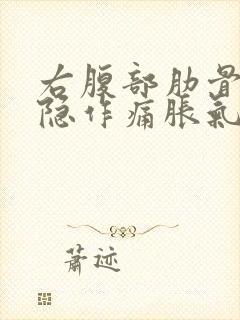 右腹部肋骨
隐作痛胀氣
萧迹